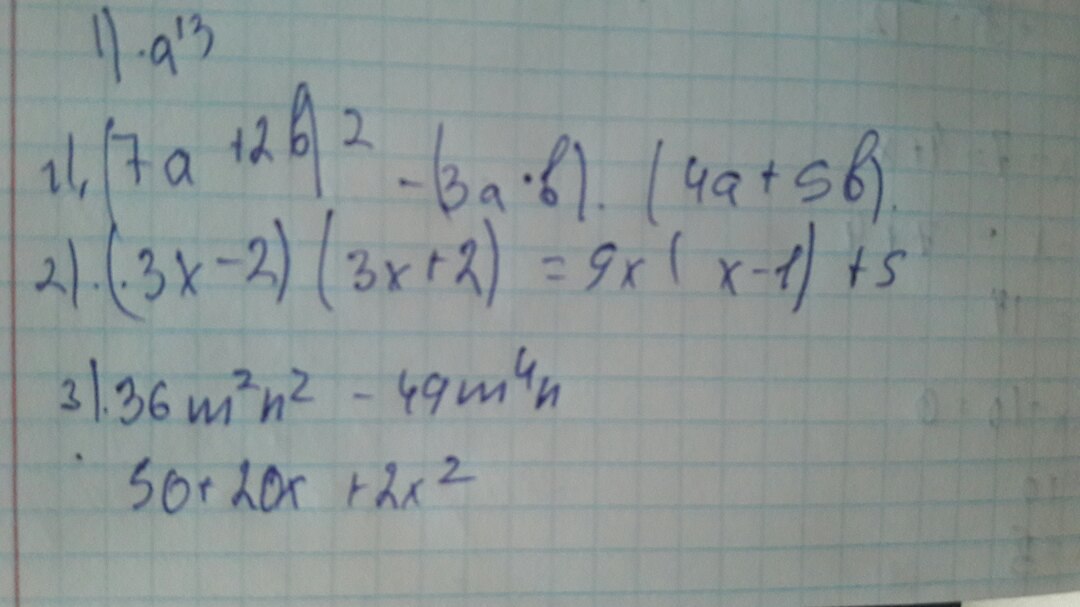 1) · a¹³
1). (7a + 2b)² - (3a · b) · (4a + 5b).
2). (3x - 2) (3x + 2) = 9x (x - 1) + 5
3). 36 m²n² - 49m⁴n
50 + 20x + 2x²